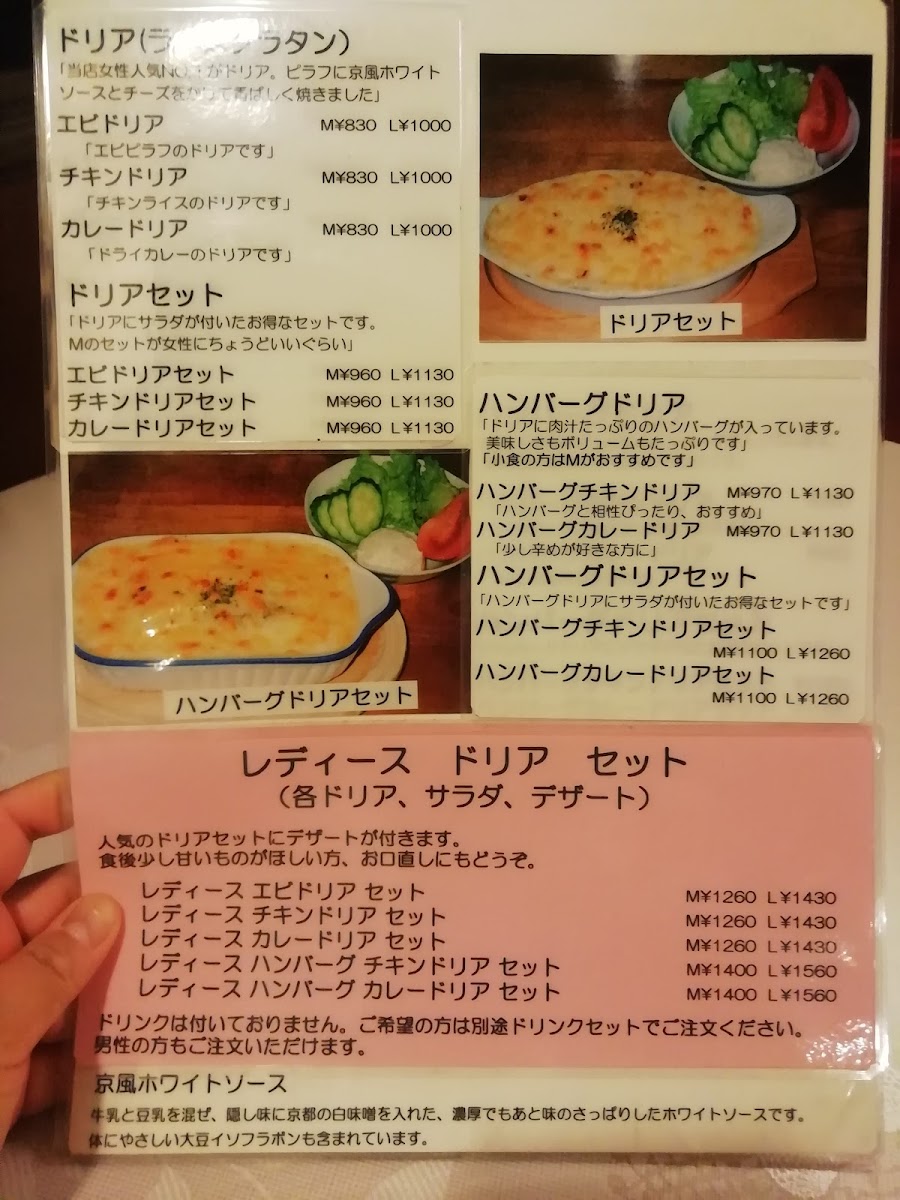 ドリア(ラ グラタン)
「当店女性人気NO. がドリア。ピラフに京風ホワイト
ソースとチーズをかけて香ばしく焼きました」
エビドリア M¥830 L¥1000
「エビピラフのドリアです」
チキンドリア M¥830 L¥1000
「チキンライスのドリアです」
カレードリア M¥830 L¥1000
「ドライカレーのドリアです」
ドリアセット
「ドリアにサラダが付いたお得なセットです。
Mのセットが女性にちょうどいいぐらい」
エビドリアセット M¥960 L¥1130
チキンドリアセット M¥960 L¥1130
カレードリアセット M¥960 L¥1130
ドリアセット
ハンバーグドリア
「ドリアに肉汁たっぷりのハンバーグが入っています。
美味しさもボリュームもたっぷりです」
「小食の方はMがおすすめです」
ハンバーグチキンドリア M¥970 L¥1130
「ハンバーグと相性ぴったり、おすすめ」
ハンバーグカレードリア M¥970 L¥1130
「少し辛めが好きな方に」
ハンバーグドリアセット
「ハンバーグドリアにサラダが付いたお得なセットです」
ハンバーグチキンドリアセット
M¥1100 L¥1260
ハンバーグカレードリアセット
M¥1100 L¥1260
ハンバーグドリアセット
レディース ドリア セット
(各ドリア、サラダ、デザート)
人気のドリアセットにデザートが付きます。
食後少し甘いものがほしい方、お口直しにもどうぞ。
レディース エビドリア セット M¥1260 L¥1430
レディース チキンドリア セット M¥1260 L¥1430
レディース カレードリア セット M¥1260 L¥1430
レディース ハンバーグ チキンドリア セット M¥1400 L¥1560
レディース ハンバーグ カレードリア セット M¥1400 L¥1560
ドリンクは付いておりません。ご希望の方は別途ドリンクセットでご注文ください。
男性の方もご注文いただけます。
京風ホワイトソース
牛乳と豆乳を混ぜ、隠し味に京都の白味噌を入れた、濃厚でもあと味のさっぱりしたホワイトソースです。
体にやさしい大豆イソフラボンも含まれています。